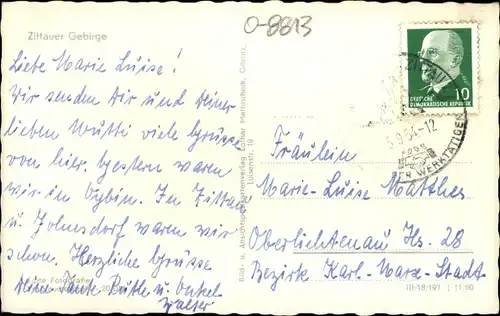 O-8813
Zittauer Gebirge
Liebe Marie Luise!
Wir senden Dir und Deiner
lieben Mutti viele Grüsse
von hier. Gestern waren
wir in Oybin. In Zittau
u. Johnsdorf waren wir
schon. Herzliche Grüsse
Deine Tante Ruthe u. Onkel
Walter
Echte Fotografie
Bild- u. Ansichtskartenverlag
Görlitz,
ZITTAU
-12
DER WERKTÄTIGEN
10
DEUTSCHE
DEMOKRATISCHE REPUBLIK
Fräulein
Marie-Luise Matthes
Oberlichtenau Hs. 28
Bezirk Karl-Marx-Stadt
III/18/197 11/60